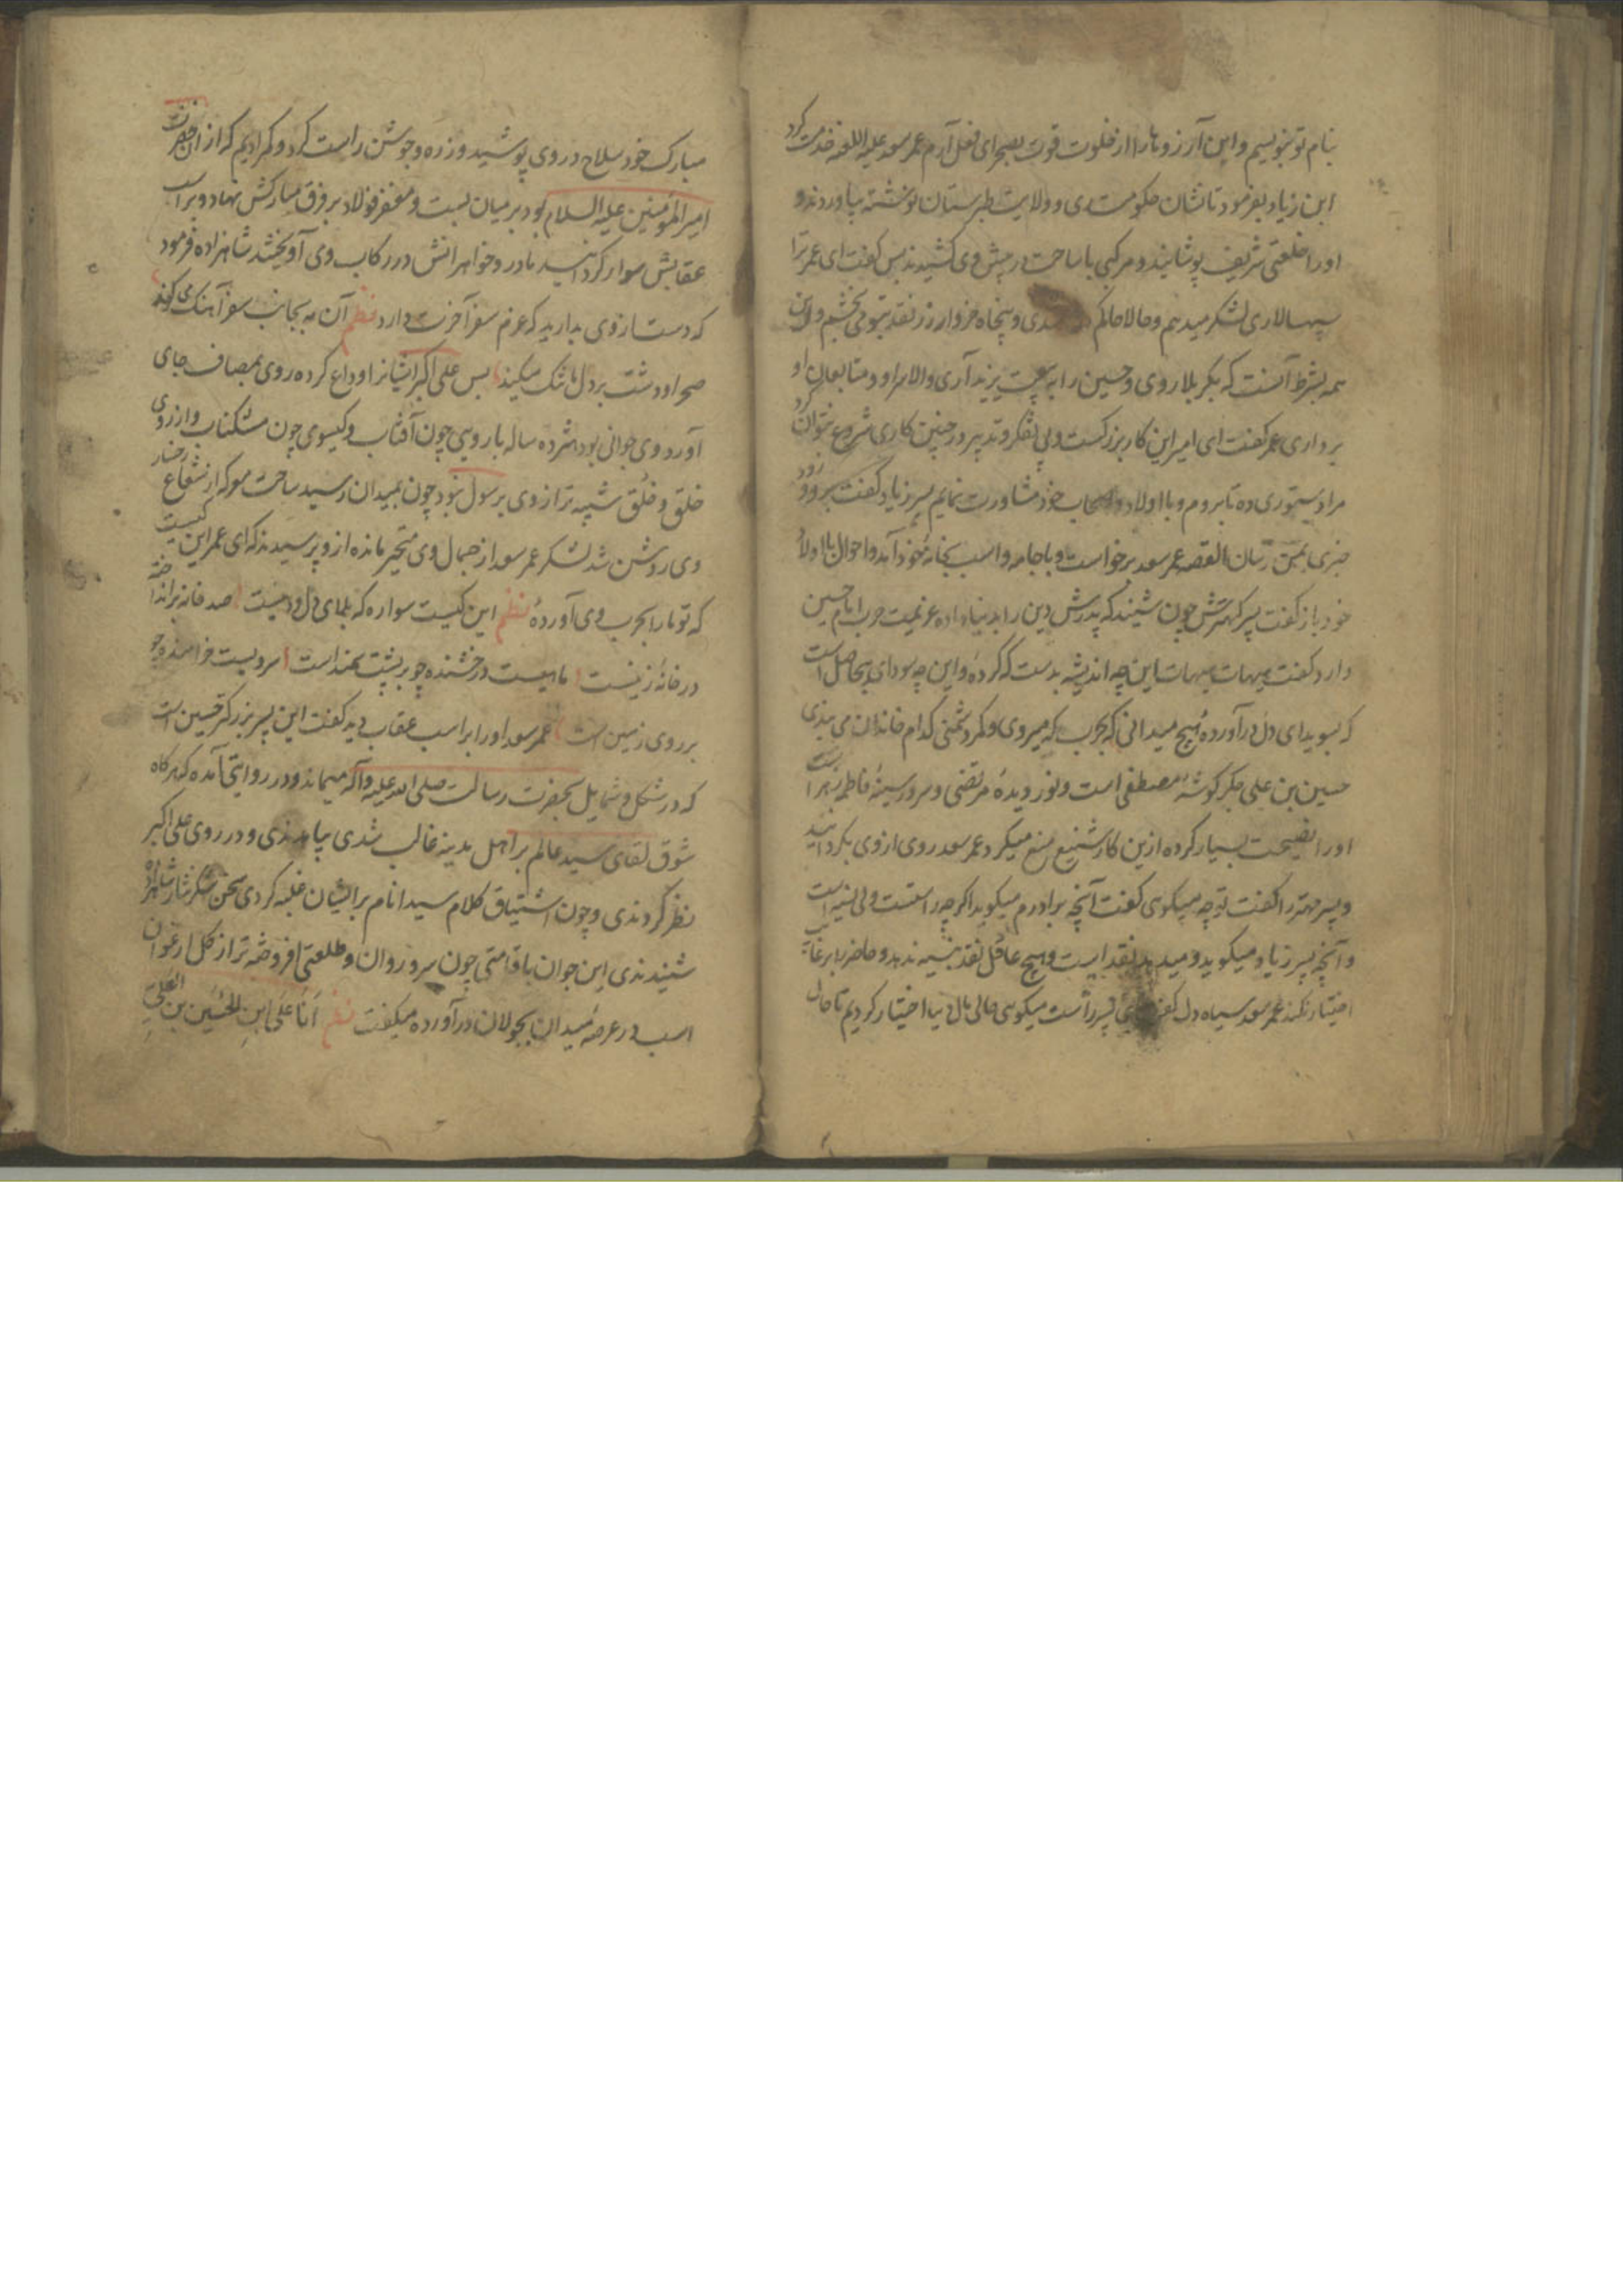 بنام تو بنویسیم و این آرزوها را از خلوت قوت بصحرای فعل آرم عمر سعد علیه اللعنه خدمت کرد
ابن زیاد بفرمود تا نشان حکومت ری و ولایت طبرستان نوشته بیاوردند و
او را خلعتی شریف پوشانیدند و مرکبی با ساخت در پیش وی کشیدند پس گفت ای عمر ترا
سپهسالاری لشکر میدهم و حالا حاکم ری و پنجاه خروار زر نقد بتو می بخشم و این
همه بشرط آنست که بکربلا روی و حسین را به بیعت یزید آری و الا سر او و متابعان او
برداری عمر گفت ای امیر این کار بزرگست و بی تفکر و تدبیر در چنین کاری شروع نتوان کرد
مرا دستوری ده تا بروم و با اولاد و اصحاب خود مشاورت نمایم پسر زیاد گفت برو و زود
خبری بمن رسان القصه عمر سعد برخواست و با جامه و اسب بخانه خود آمد و احوال با اولاد
خود باز گفت پسر کهترش چون شنید که پدرش دین را بدنیا داده عزیمت حرب امام حسین
دارد گفت هیهات هیهات این چه اندیشه بدست که کرده و این چه سودای بیحاصل است
که بسویدای دل درآورده هیچ میدانی که بحرب که میروی و کمر دشمنی کدام خاندان می بندی
حسین بن علی جگر گوشه مصطفی است و نور دیده مرتضی و سرور سینه فاطمه زهرا است
او را نصیحت بسیار کرده ازین کار شنیع منع میکرد عمر سعد روی از وی بگردانید
و پسر مهتر را گفت تو چه میگوئی گفت آنچه برادرم میگوید اگر چه راستست ولی نسیه است
و آنچه پسر زیاد میگوید و میدهد نقد است و هیچ عاقل نقد بنسیه ندهد و حاضر را بر غایب
اختیار نکند عمر سعد سیاه دل گفت ای پسر راست میگوئی حالی مال دنیا اختیار کردیم تا حال
مبارک خود سلاح در وی پوشید و زره و جوشن راست کرد و کمر ادیم که از آن حضرت
امیر المؤمنین علیه السلام بود بر میان بست و مغفر فولاد بر فرق مبارکش نهاد و بر اسب
عقابش سوار گردانید مادر و خواهرانش در رکاب وی آویختند شاهزاده فرمود
که دست از وی بدارید که عزم سفر آخرت دارد نظم آن مه بجانب سفر آهنگ می کند
صحرا و دشت بر دل ما تنگ میکند پس علی اکبر ایشانرا وداع کرده روی بمصاف جای
آورد و وی جوانی بود هژده ساله با رویی چون آفتاب و گیسویی چون مشکناب و از روی
خلق و خلق شبیه تر از وی برسول نبود چون بمیدان رسید ساحت معرکه از شعاع رخسار
وی روشن شد لشکر عمر سعد از جمال وی متحیر مانده از و پرسیدند که ای عمر این کیست
که تو ما را بحرب وی آوردهٔ نظم این کیست سواره که بلای دل و دینست صد خانه برانداخته
در خانه زینست ماهیست درخشنده چو بر پشت سمند است سرویست خرامنده چو
بر روی زمین است عمر سعد او را بر اسب عقاب دید گفت این پسر بزرگتر حسین است
که در شکل و شمایل بحضرت رسالت صلی الله علیه و آله میماند و در روایتی آمده که هر گاه
شوق لقای سید عالم بر اهل مدینه غالب شدی بیامدندی و در روی علی اکبر
نظر کردندی و چون اشتیاق کلام سید انام بر ایشان غلبه کردی سخن شکر نثار شاهزاده
شنیدندی این جوان با قامتی چون سرو روان و طلعتی افروخته تر از گل ارغوان
اسب در عرصه میدان بجولان درآورده میگفت نظم اَنَا عَلی ابنِ الحُسَین بن العَلِیِّ